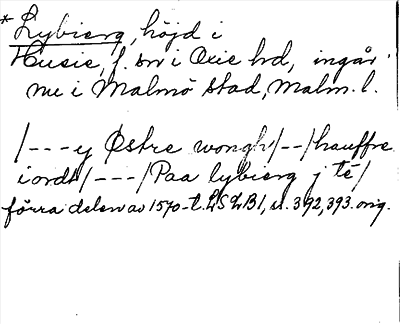 *Lybierg, höjd i
Husie, f. sn i Oxie hd, ingår
nu i Malmö stad, Malm. l.
/---y Østre wongh/--/hauffre
iordt/---/Paa lybierg j té/
förra delen av 1570-t. LSLB1, s. 392, 393. orig.